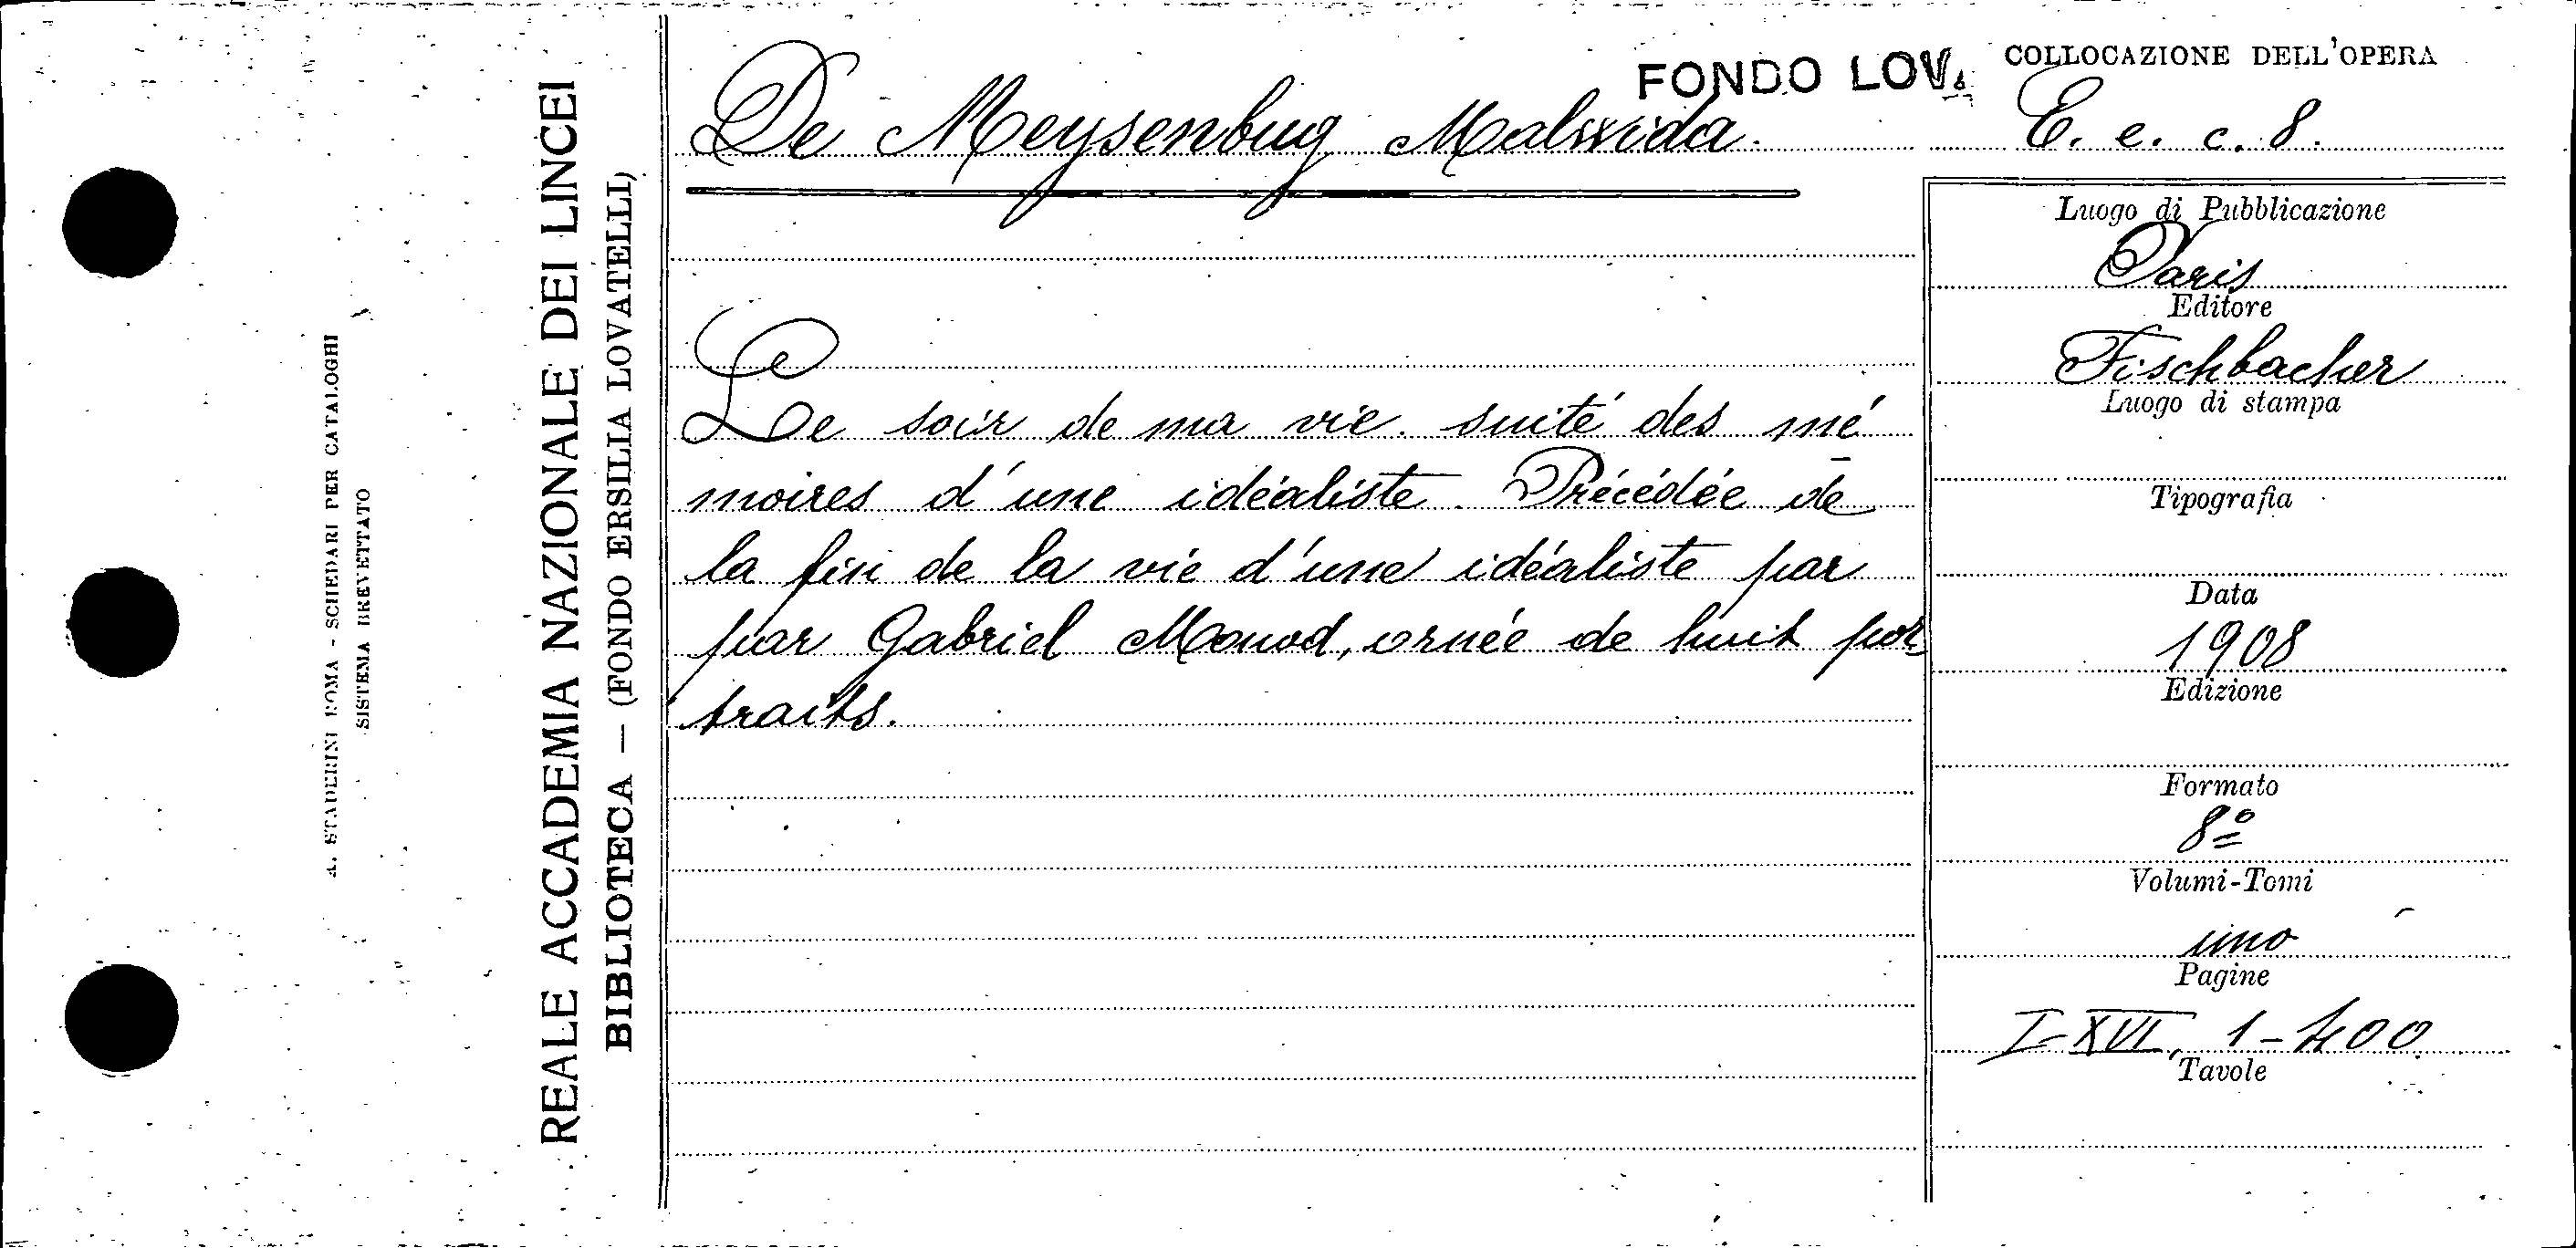 A. STADERINI ROMA - SCHEDARI PER CATALOGHI
SISTEMA BREVETTATO
REALE ACCADEMIA NAZIONALE DEI LINCEI
BIBLIOTECA — (FONDO ERSILIA LOVATELLI)
FONDO LOV.
De Meysenbug Malwida.
Le soir de ma vie. suité des mé
moires d'une idéaliste. Précédée de
la fin de la vie d'une idéaliste par
par Gabriel Monod, ornée de huit por
traits.
COLLOCAZIONE DELL'OPERA
E. e. c. 8.
Luogo di Pubblicazione
Paris
Editore
Fischbacher
Luogo di stampa
Tipografia
Data
1908
Edizione
Formato
8º
Volumi-Tomi
uno
Pagine
I-XVI, 1-400
Tavole